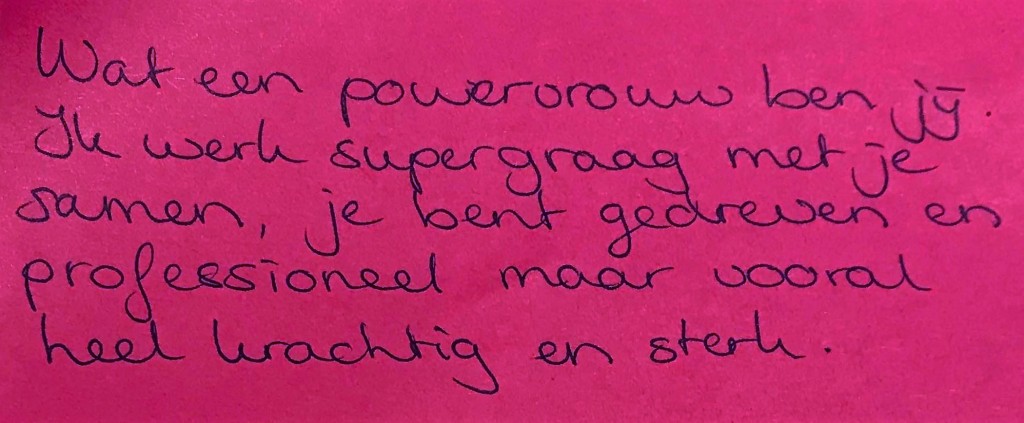 Wat een powervrouw ben jij.
Ik werk supergraag met je
samen, je bent gedreven en
professioneel maar vooral
heel krachtig en sterk.